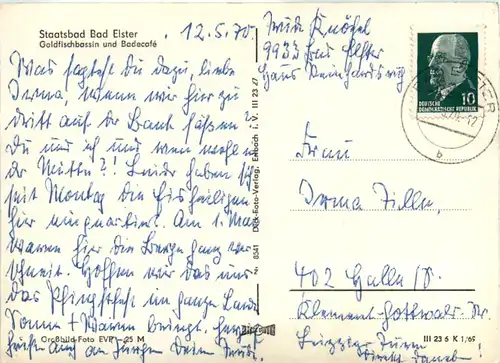 Staatsbad Bad Elster
Goldfischbassin und Badecafé
12.5.70.
Was sagtest Du dazu, liebe
Irma, wenn wir hier zu
dritt auf der Bank säßen?
Du und ich und wen wohl in
der Mitte?! Leider haben sich
seit Montag die Eisheiligen
hier einquartiert. Am 1. Mai
waren hier die Berge ganz ver-
schneit. Hoffen wir das uns
das Pfingstfest im ganzen Lande
Sonne + Wärme bringt. Herzl.
Grüße auch an Jürgen Deine Trude
Großbild-Foto EVP -25 M
8541 Dick-Foto-Verlag, Erlbach i. V. III 23 27
Trude
9933 Bad Elster
Haus
DEUTSCHE
DEMOKRATISCHE REPUBLIK
10
b
Frau
Irma Zille,
402 Halle/S.
Klement-Gottwald-Str.
III 23 6 K 1/69